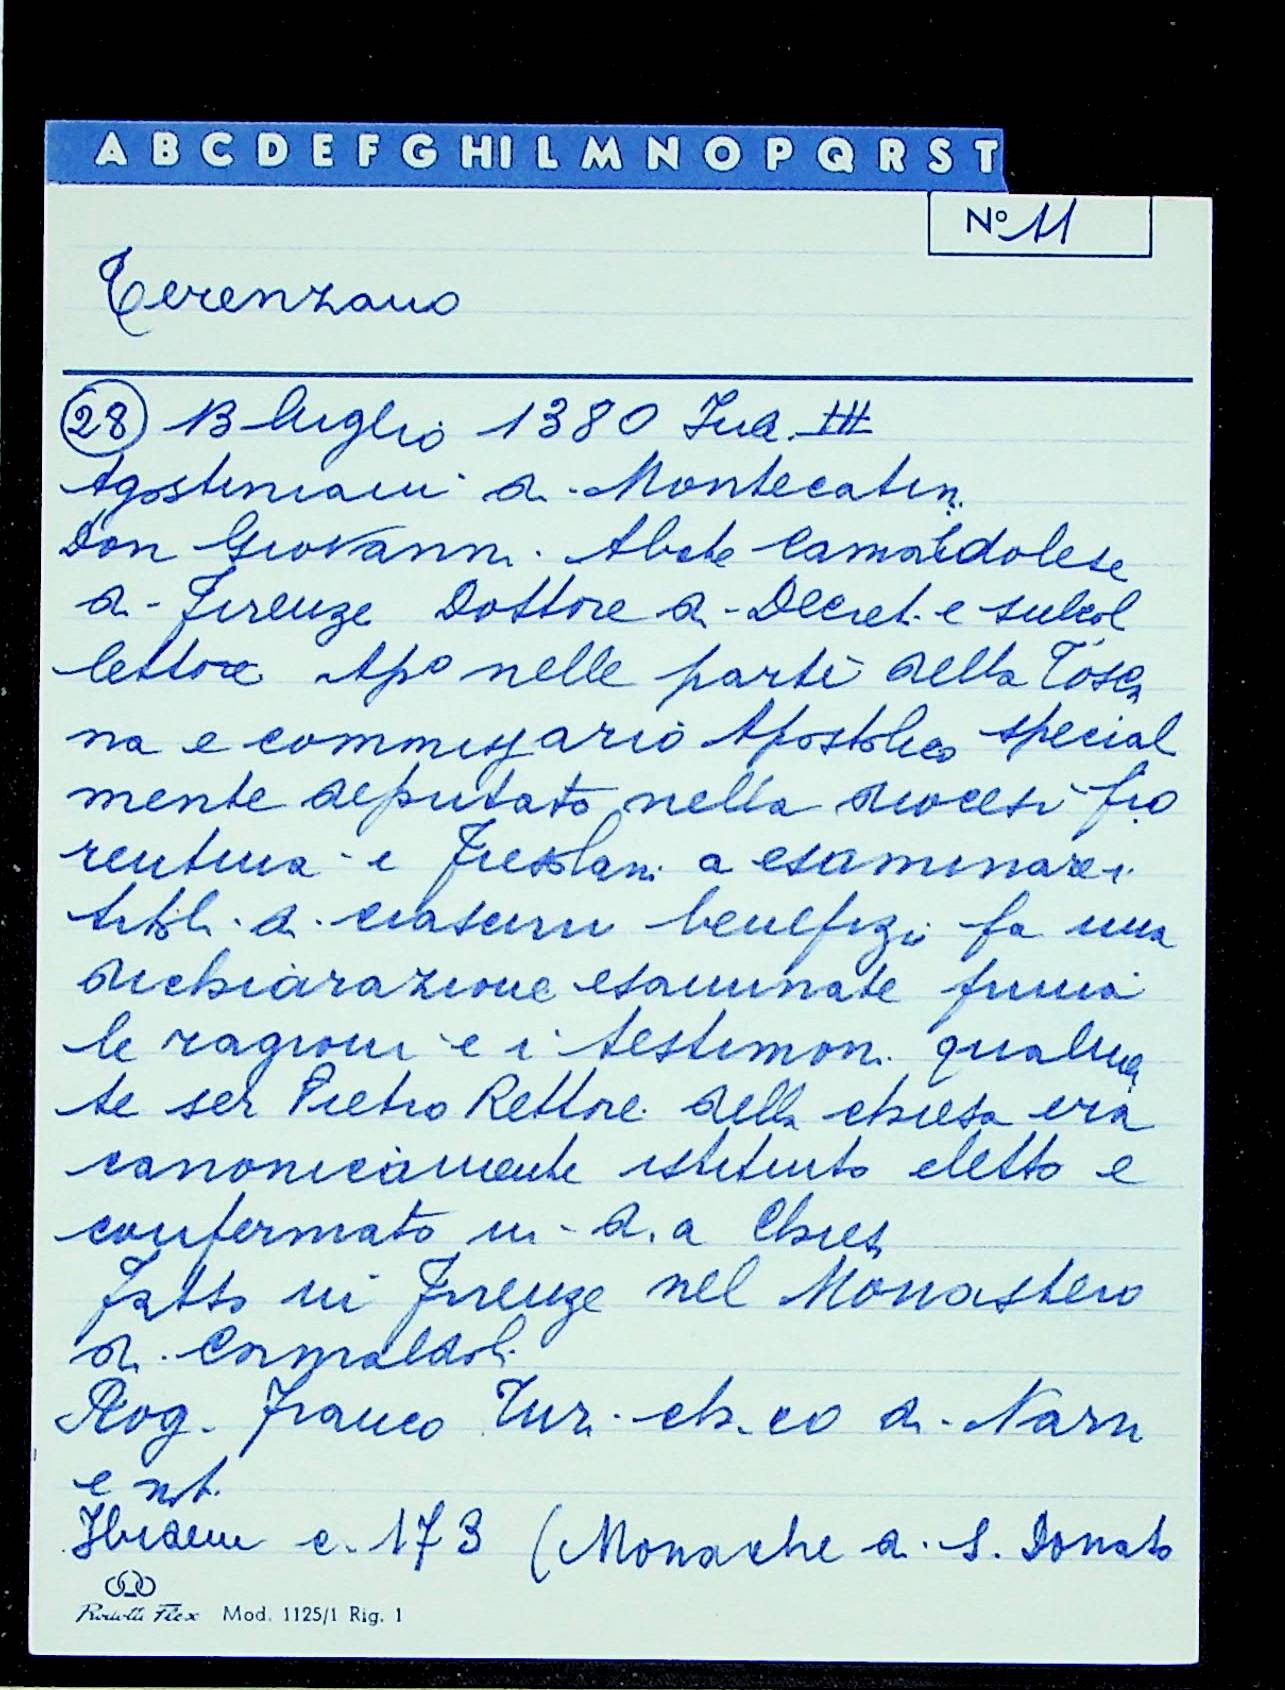 A B C D E F G HI L M N O P Q R S T
No 11
Terenzano
28 13 luglio 1380 Ind. III
Agostiniani di Montecatini
Don Giovanni Abate Camaldolese
di Firenze Dottore di Decreti e subcol
lettore Apo nelle parti della Tosca
na e commissario Apostolico special
mente deputato nella diocesi fio
rentina e Fiesolani a esaminare i
titoli di ciascun benefizi fa una
dichiarazione esaminate
le ragioni e i testimoni qualmen
te ser Pietro Rettore della chiesa era
canonicamente istituito eletto e
confermato in d.a Chies
Fatto in Firenze nel Monastero
di Camaldoli
Rog. Franco ch.co di Narni
e not.
Ibidem c. 173 (Monache di S. Donato
Flex Mod. 1125/1 Rig. 1